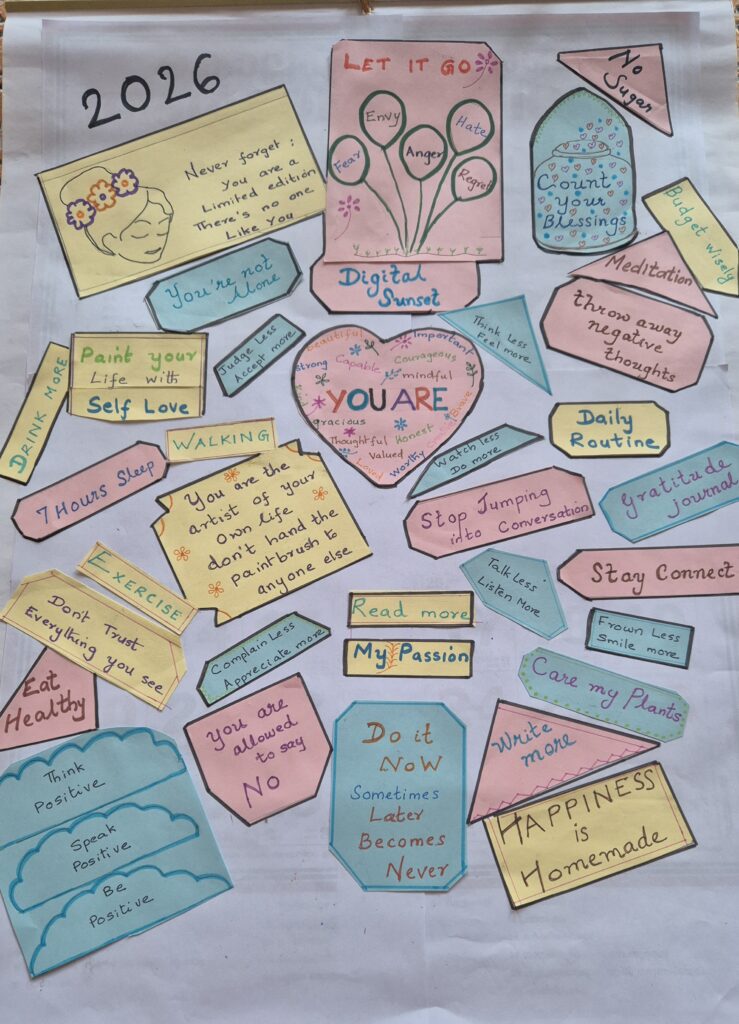 2026
LET IT GO
Envy
Hate
Fear
Anger
Regret
No
Sugar
Never forget :
You are a
Limited edition
There's no one
Like You
Count
Your
Blessings
Budget Wisely
You're not
Alone
Digital
Sunset
Meditation
throw away
negative
thoughts
Think Less
Feel more
Judge Less
Accept more
Paint your
Life with
Self Love
DRINK MORE
Beautiful
Important
Strong
Capable
Courageous
mindful
YOU ARE
gracious
Brave
Thoughtful
Honest
Valued
Loved
Worthy
Daily
Routine
WALKING
Watch less
Do more
7 Hours Sleep
You are the
artist of your
own life
don't hand the
paintbrush to
anyone else
Stop Jumping
into Conversation
Gratitude
journal
EXERCISE
Talk Less
Listen More
Stay Connect
Don't Trust
Everything you see
Read more
Complain Less
Appreciate more
My Passion
Frown Less
Smile more
Eat
Healthy
Care my Plants
You are
allowed
to say
NO
Do it
NOW
Sometimes
Later
Becomes
Never
Write
more
Think
Positive
Speak
Positive
Be
Positive
HAPPINESS
is
Homemade